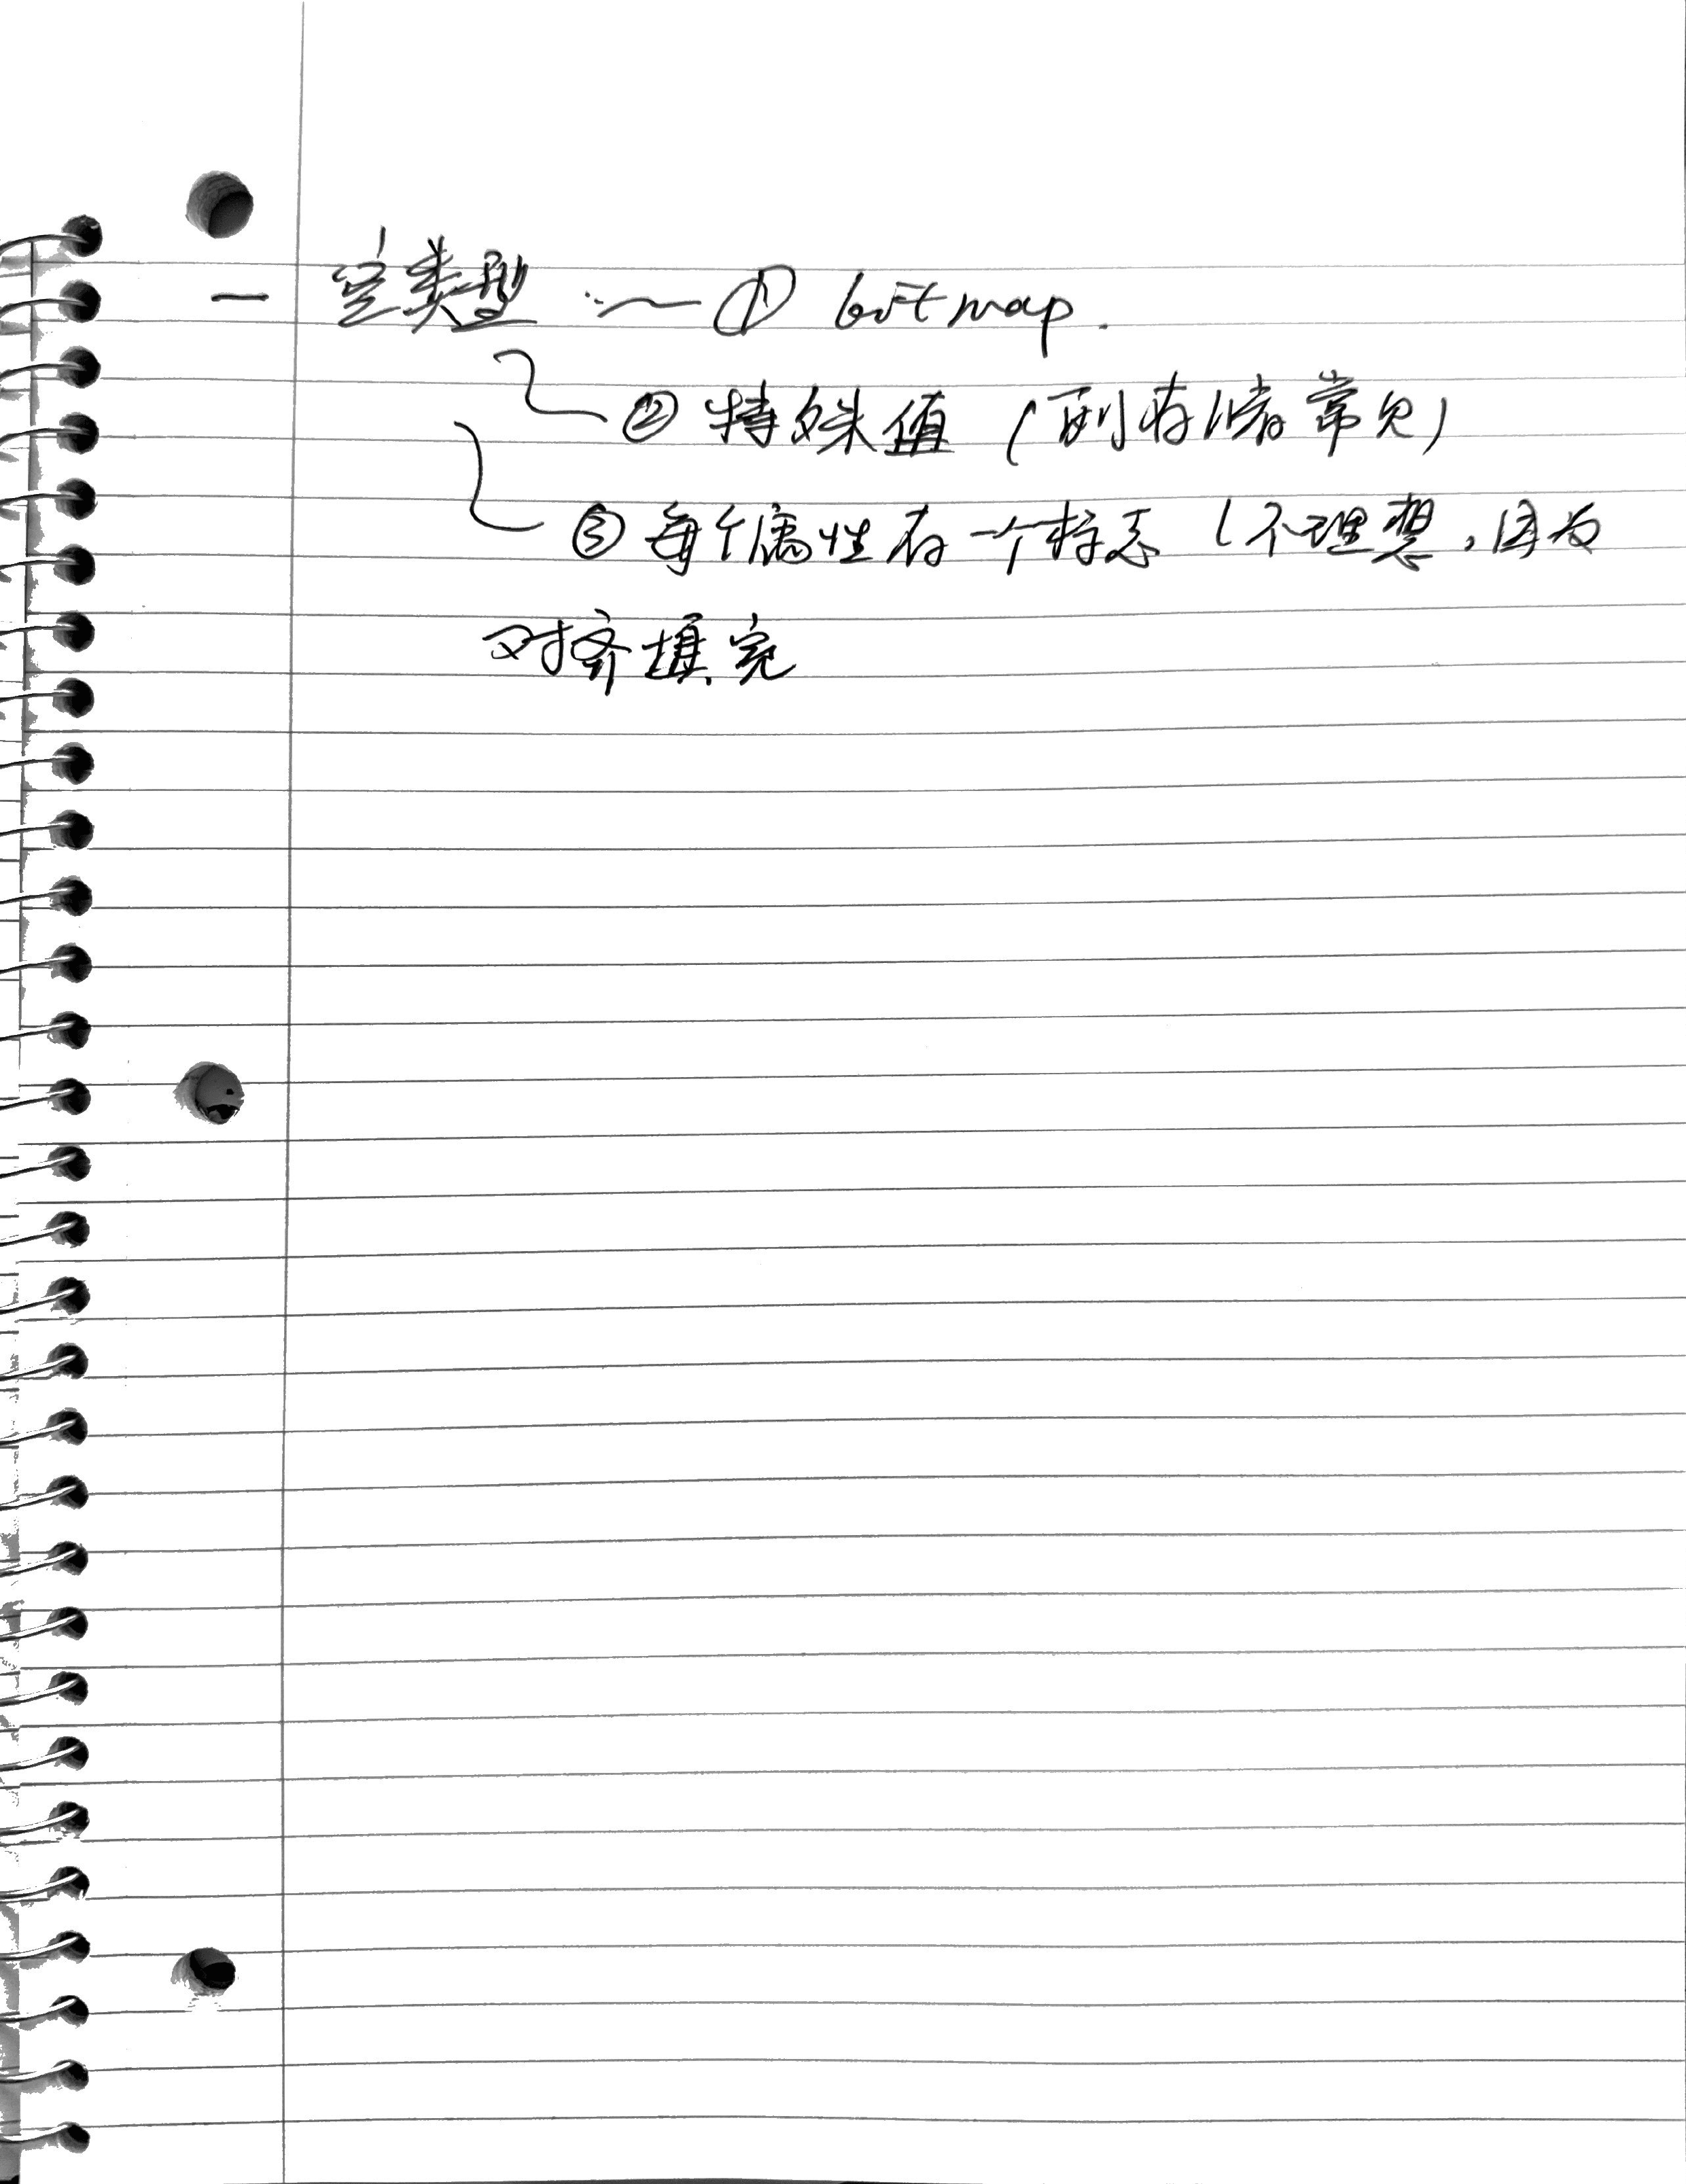 一 空类型 ① bitmap.
② 特殊值 (列存储常见)
③ 每个属性有一个标志 (不理想,因为
对齐填充